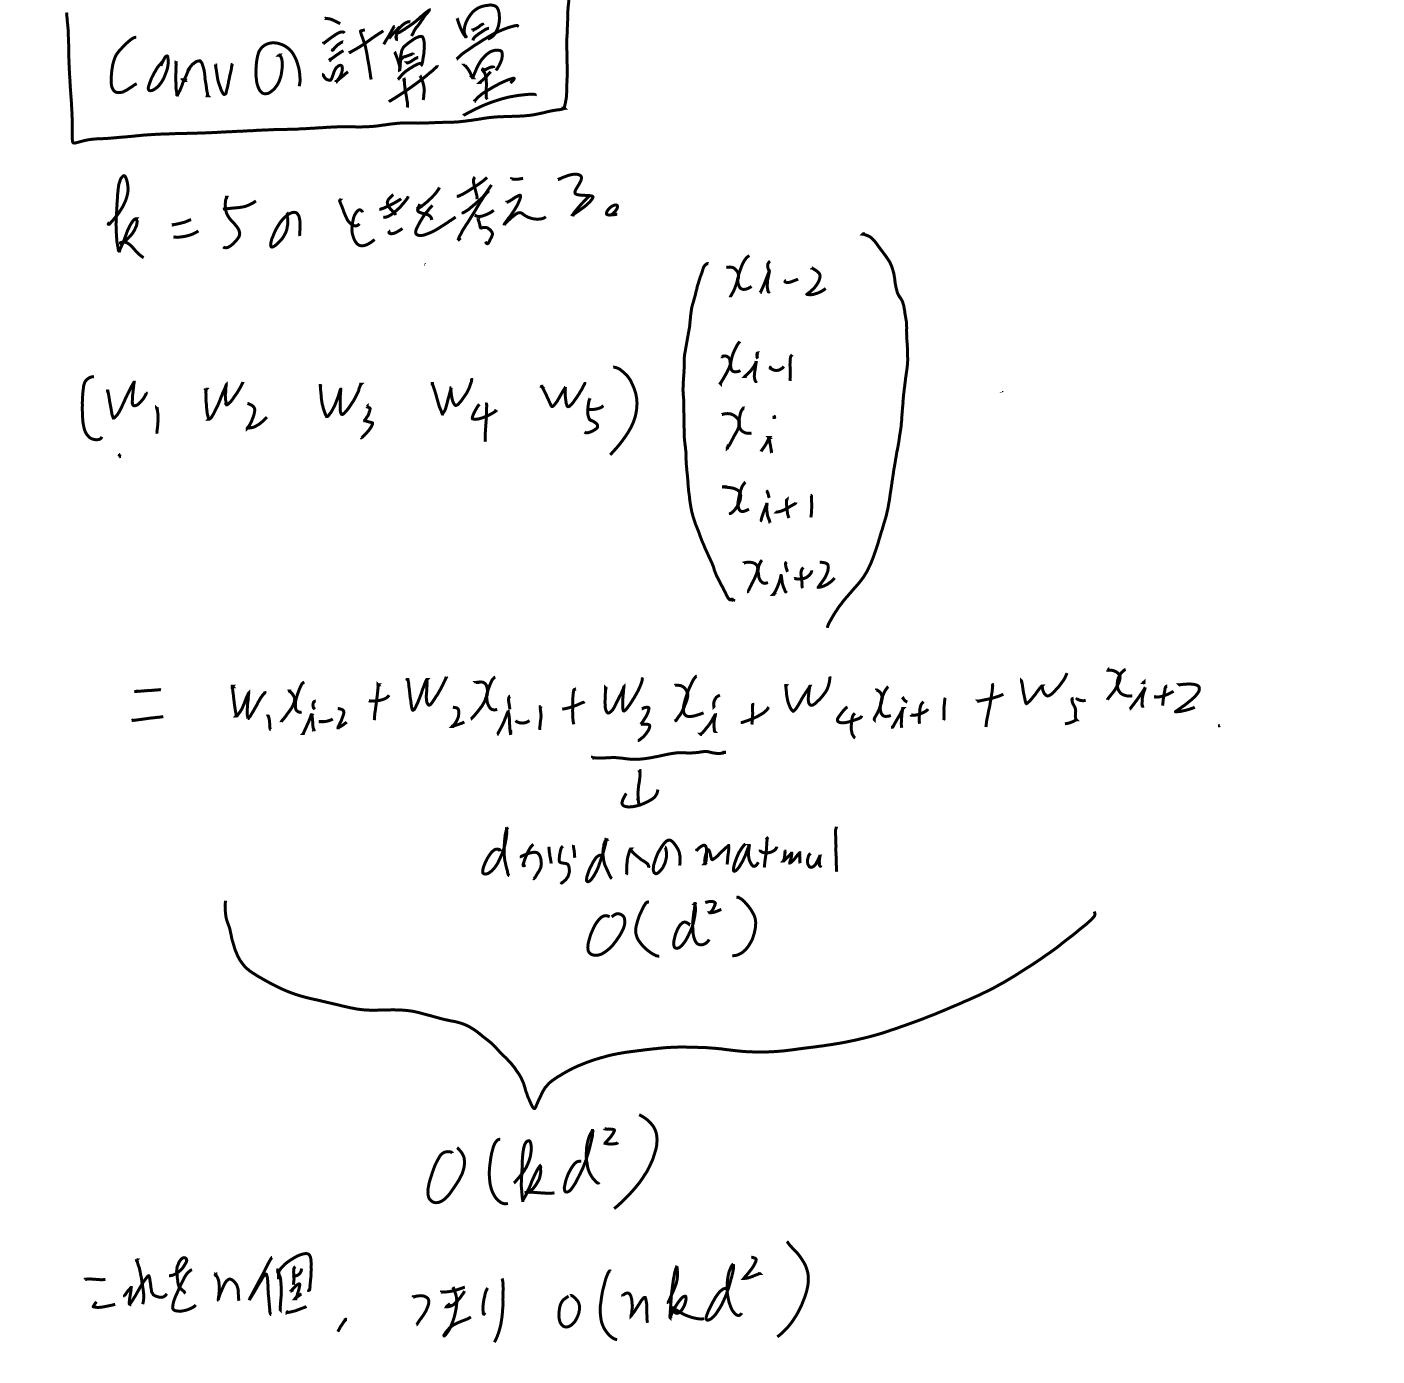 Convの計算量
k = 5のときを考える。
(W₁ W₂ W₃ W₄ W₅) (xᵢ₋₂ xᵢ₋₁ xᵢ xᵢ₊₁ xᵢ₊₂)
= W₁xᵢ₋₂ + W₂xᵢ₋₁ + W₃xᵢ + W₄xᵢ₊₁ + W₅xᵢ₊₂
↓
dからdへのmatmul
O(d²)
O(kd²)
これをn個, つまり O(nkd²)